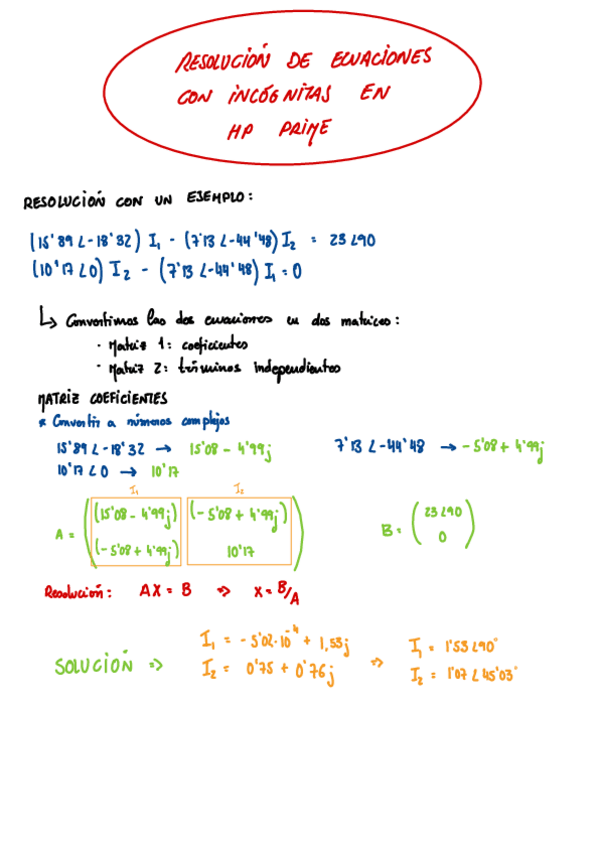 RESOLUCIÓN DE ECUACIONES
CON INCÓGNITAS EN
HP PRIME
RESOLUCIÓN CON UN EJEMPLO:
(15'89 ∠-18'32) I₁ - (7'13 ∠-44'48) I₂ = 23 ∠90
(10'17 ∠0) I₂ - (7'13 ∠-44'48) I₁ = 0
↳ Convertimos las dos ecuaciones en dos matrices:
· Matriz 1: coeficientes
· Matriz 2: términos independientes
MATRIZ COEFICIENTES
* Convertir a números complejos
15'89 ∠-18'32 → 15'08 - 4'99j 7'13 ∠-44'48 → -5'08 + 4'99j
10'17 ∠0 → 10'17
I₁ I₂
(15'08 - 4'99j) (-5'08 + 4'99j) 23 ∠90
A = B =
(-5'08 + 4'99j) 10'17 0
Resolución: AX = B ⇒ X = B/A
I₁ = -5'02·10⁻⁴ + 1,53j I₁ = 1'53 ∠90°
SOLUCIÓN ⇒ ⇒
I₂ = 0'75 + 0'76j I₂ = 1'07 ∠45'03°